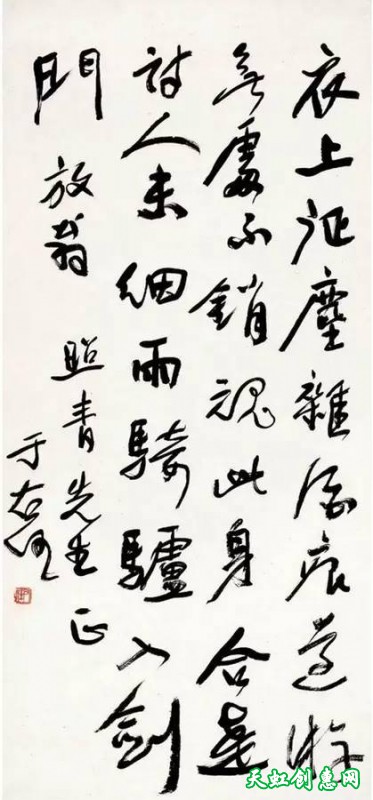 衣上征塵雜酒痕遠游
無處不銷魂此身合是
詩人未細雨騎驢入劍
門 放翁 照青先生正
于右任
天虹创惠网